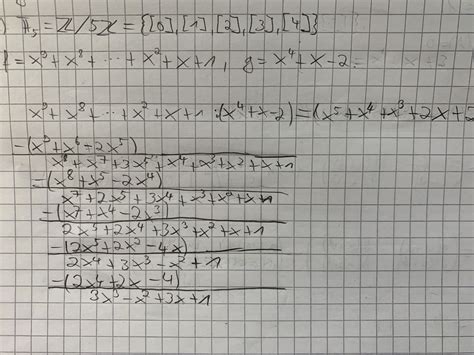 ) F₅ = ℤ/5ℤ = {[0],[1],[2],[3],[4]}
f = x⁹+x⁸+ ⋯ +x²+x+1, g = x⁴+x-2
x⁹+x⁸+ ⋯ +x²+x+1 : (x⁴+x-2) = (x⁵+x⁴+x³+2x+
-(x⁹+x⁶-2x⁵)
x⁸+x⁷+3x⁵+x⁴+x³+x²+x+1
-(x⁸+x⁵-2x⁴)
x⁷+2x⁵+3x⁴+x³+x²+x+1
-(x⁷+x⁴-2x³)
2x⁵+2x⁴+3x³+x²+x+1
-(2x⁵+2x²-4x)
2x⁴+3x³-x²+1
-(2x⁴+2x-4)
3x³-x²+3x+1